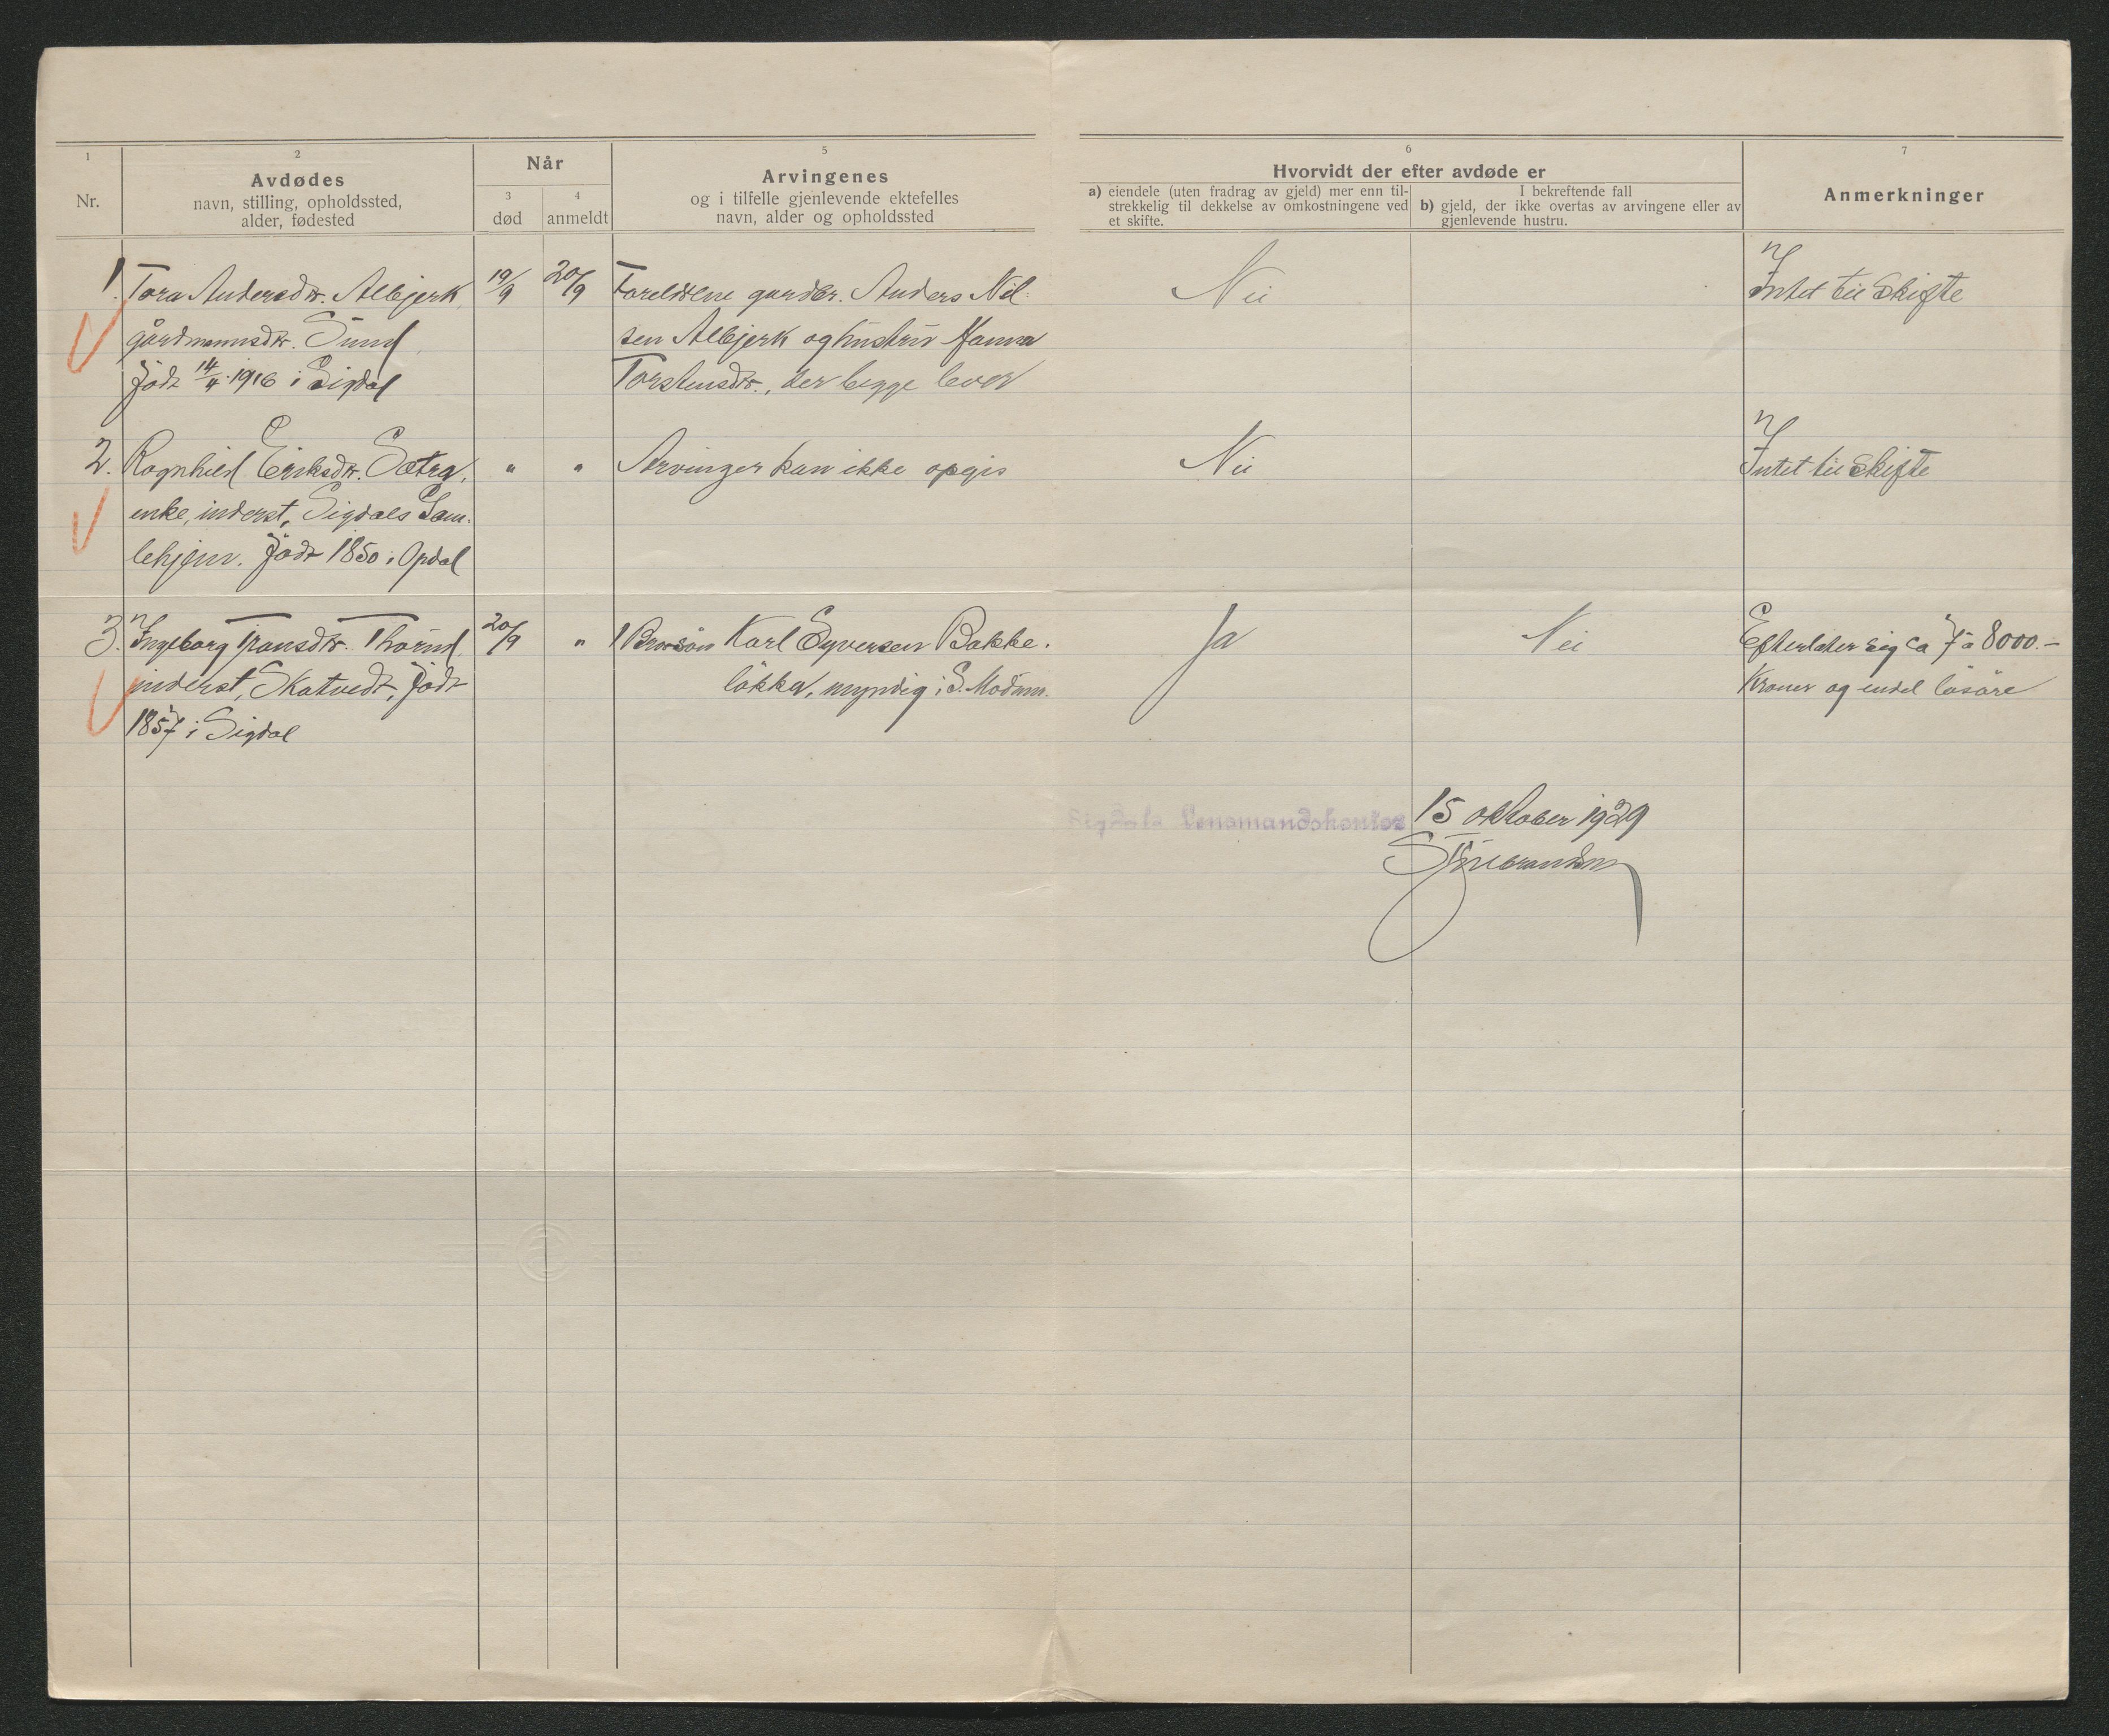 1
Nr.
2
Avdødes
navn, stilling, opholdssted,
alder, fødested
Når
3
død
4
anmeldt
5
Arvingenes
og i tilfelle gjenlevende ektefelles
navn, alder og opholdssted
6
Hvorvidt der efter avdøde er
a) eiendele (uten fradrag av gjeld) mer enn til-
strekkelig til dekkelse av omkostningene ved
et skifte.
I bekreftende fall
b) gjeld, der ikke overtas av arvingene eller av
gjenlevende hustru.
7
Anmerkninger
1. Tora Andersdtr. Albjerk,
gårdmannsdtr. Sund,
född 14/4 1916 i Sigdal
19/9
20/9
Foreldrene gardbr. Anders Nil-
sen Albjerk og hustru Hanna
Torstensdtr., der begge lever
Nei
Intet til skifte
2. Ragnhild Eriksdtr. Sætra,
enke, inderst, Sigdals Gam-
lehjem. Född 1850 i Opdal
"
"
Arvinger kan ikke opgis
Nei
Intet til skifte
3. Ingeborg Transdtr. Thorud,
inderst, Skatvedt, född
1857 i Sigdal
20/9
"
1 Brorsön Karl Syversen Bakke-
lökka, myndig i S. Modum.
Ja
Nei
Efterlater sig ca 7 à 8000.-
Kroner og endel lösöre
Sigdals Lensmandskontor 15 oktober 1929